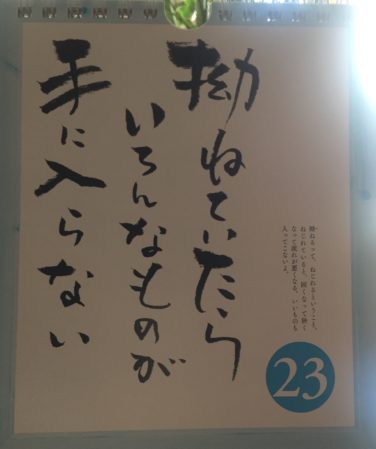 拗ねていたら
いろんなものが
手に入らない
拗ねるって、ねじれるということ。
ねじれていると、細くなって狭く
なって流れが悪くなる。いいものも
入ってこないよ。
23